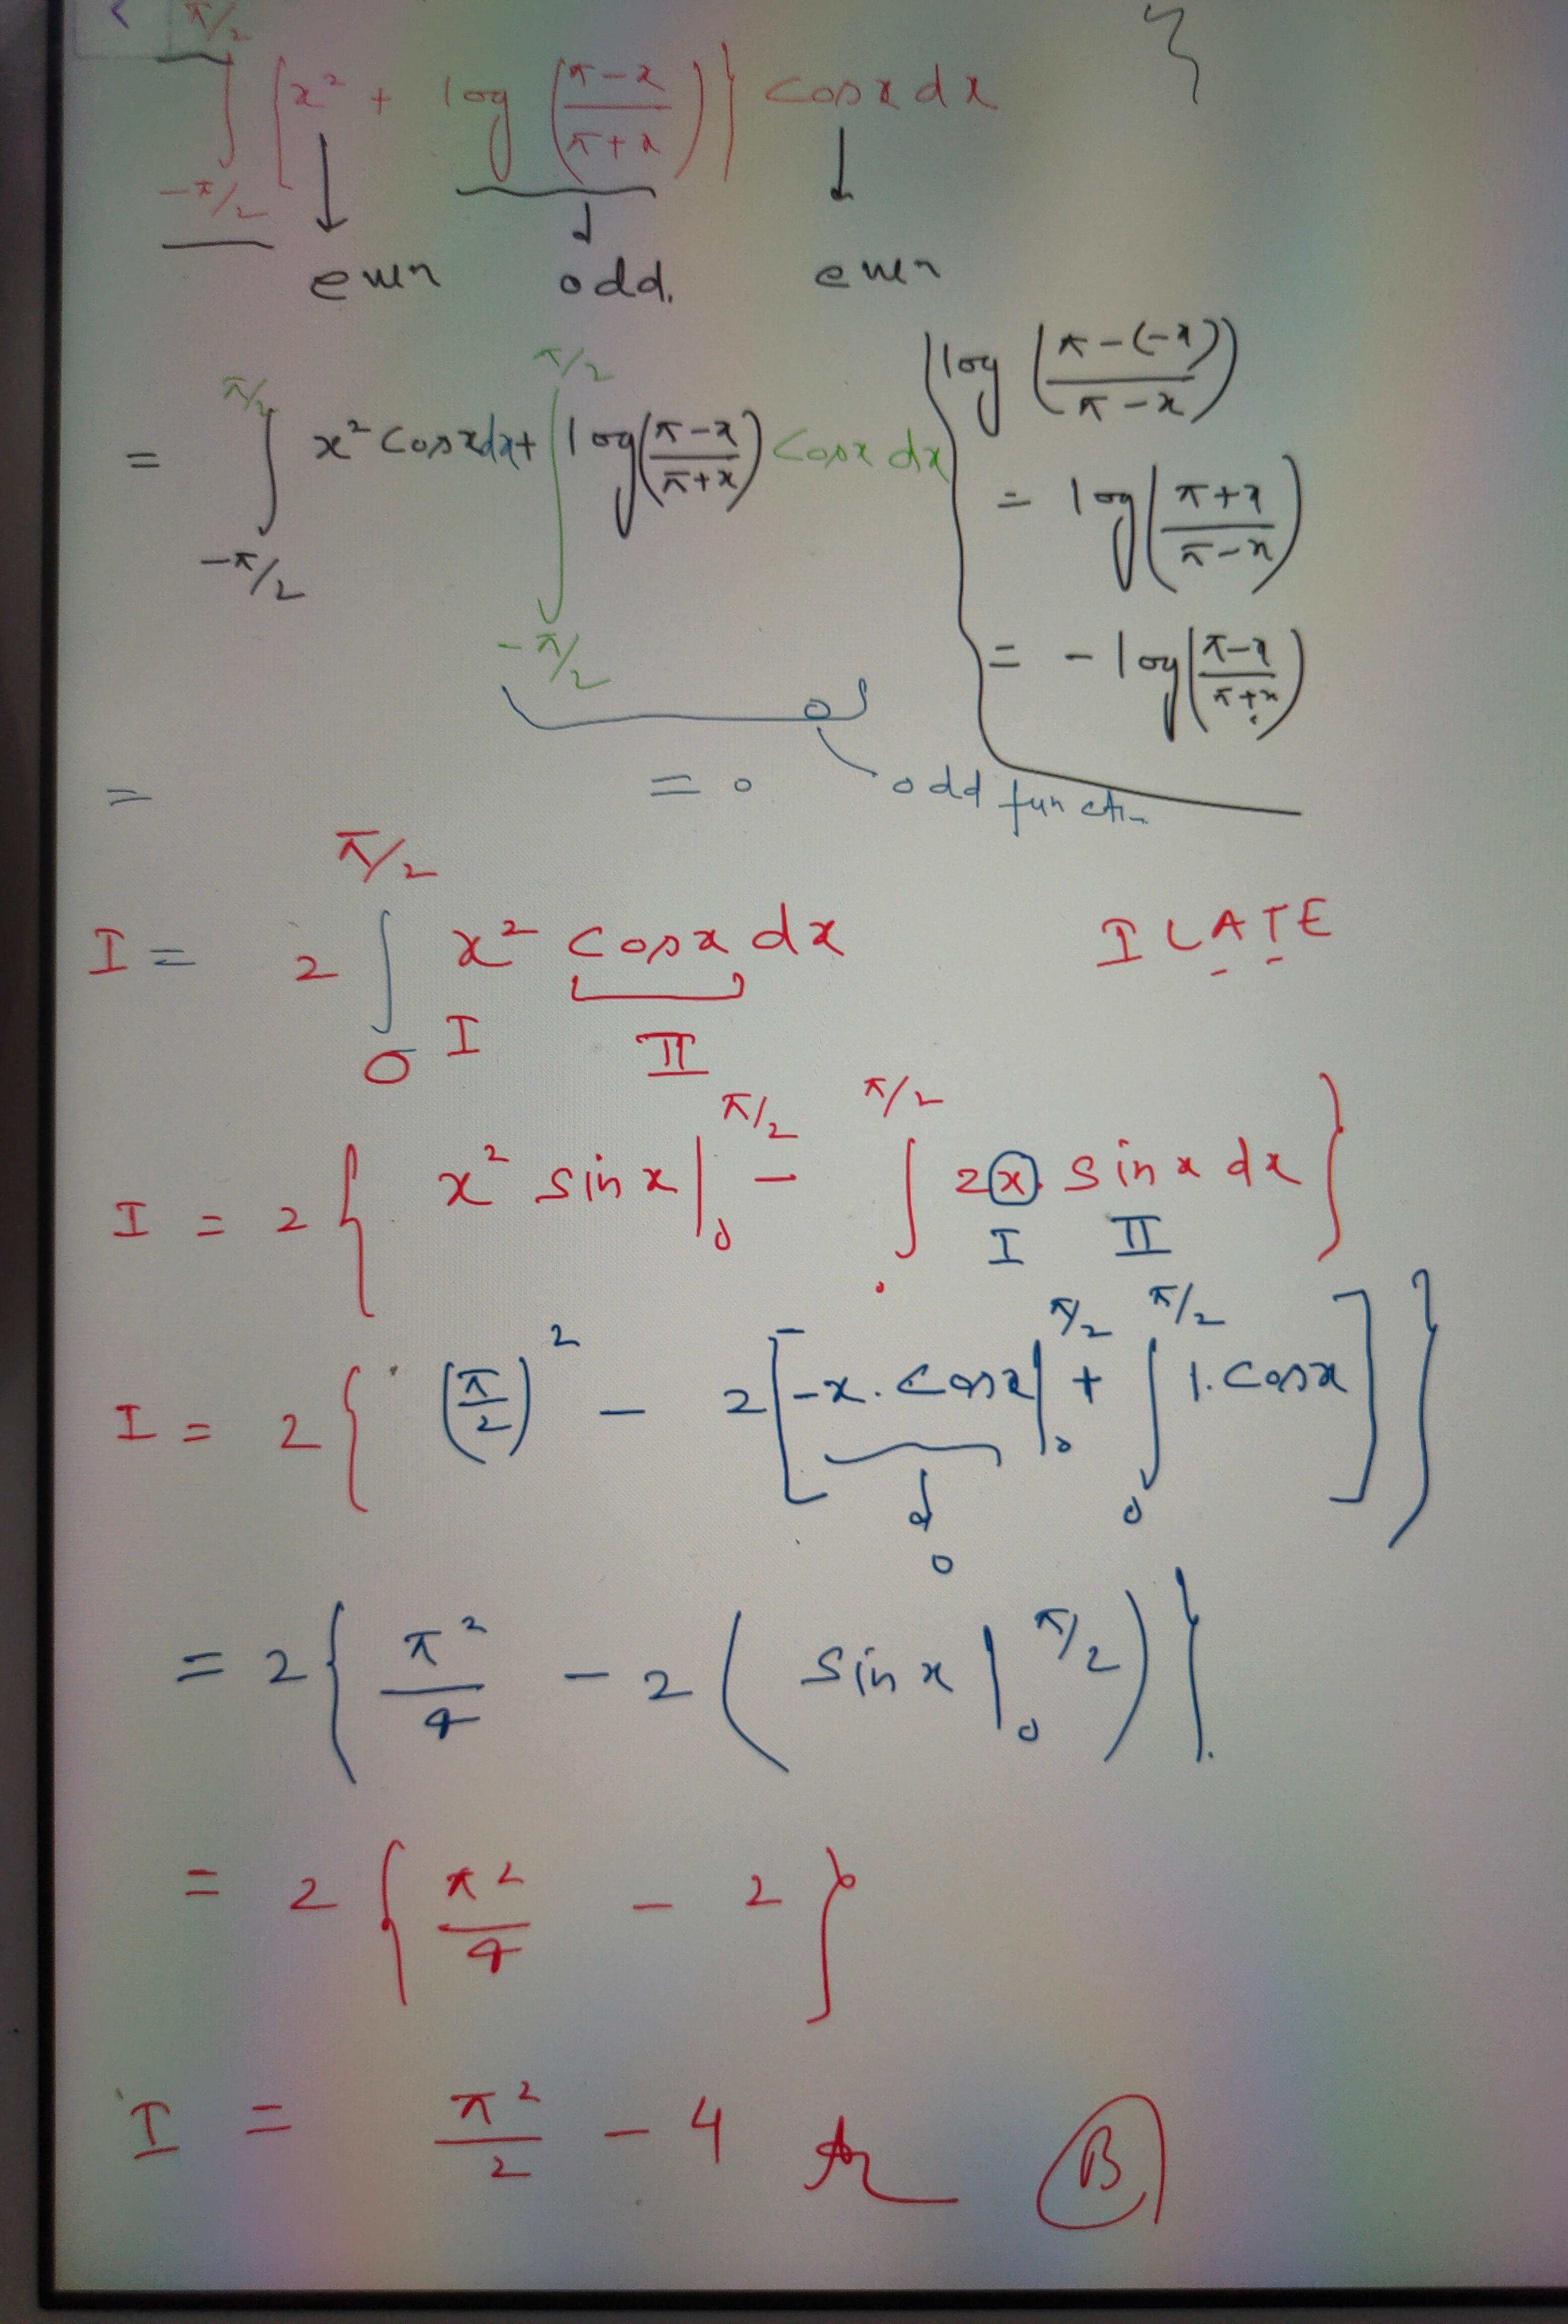 ∫_{-π/2}^{π/2} {x² + log((π-x)/(π+x))} cosx dx
even odd. even
= ∫_{-π/2}^{π/2} x² cosx dx + ∫_{-π/2}^{π/2} log((π-x)/(π+x)) cosx dx
log((π-(-x))/(π-x))
= log((π+x)/(π-x))
= -log((π-x)/(π+x))
= = 0 odd functi
I = 2 ∫_0^{π/2} x² cosx dx ILATE
I II
I = 2{ x² sinx |_0^{π/2} - ∫_0^{π/2} 2x. sinx dx }
I II
I = 2{ (π/2)² - 2[ -x. cosx |_0^{π/2} + ∫_0^{π/2} 1. cosx ] }
0
= 2{ π²/4 - 2( sinx |_0^{π/2} ) }
= 2{ π²/4 - 2 }
I = π²/2 - 4 B